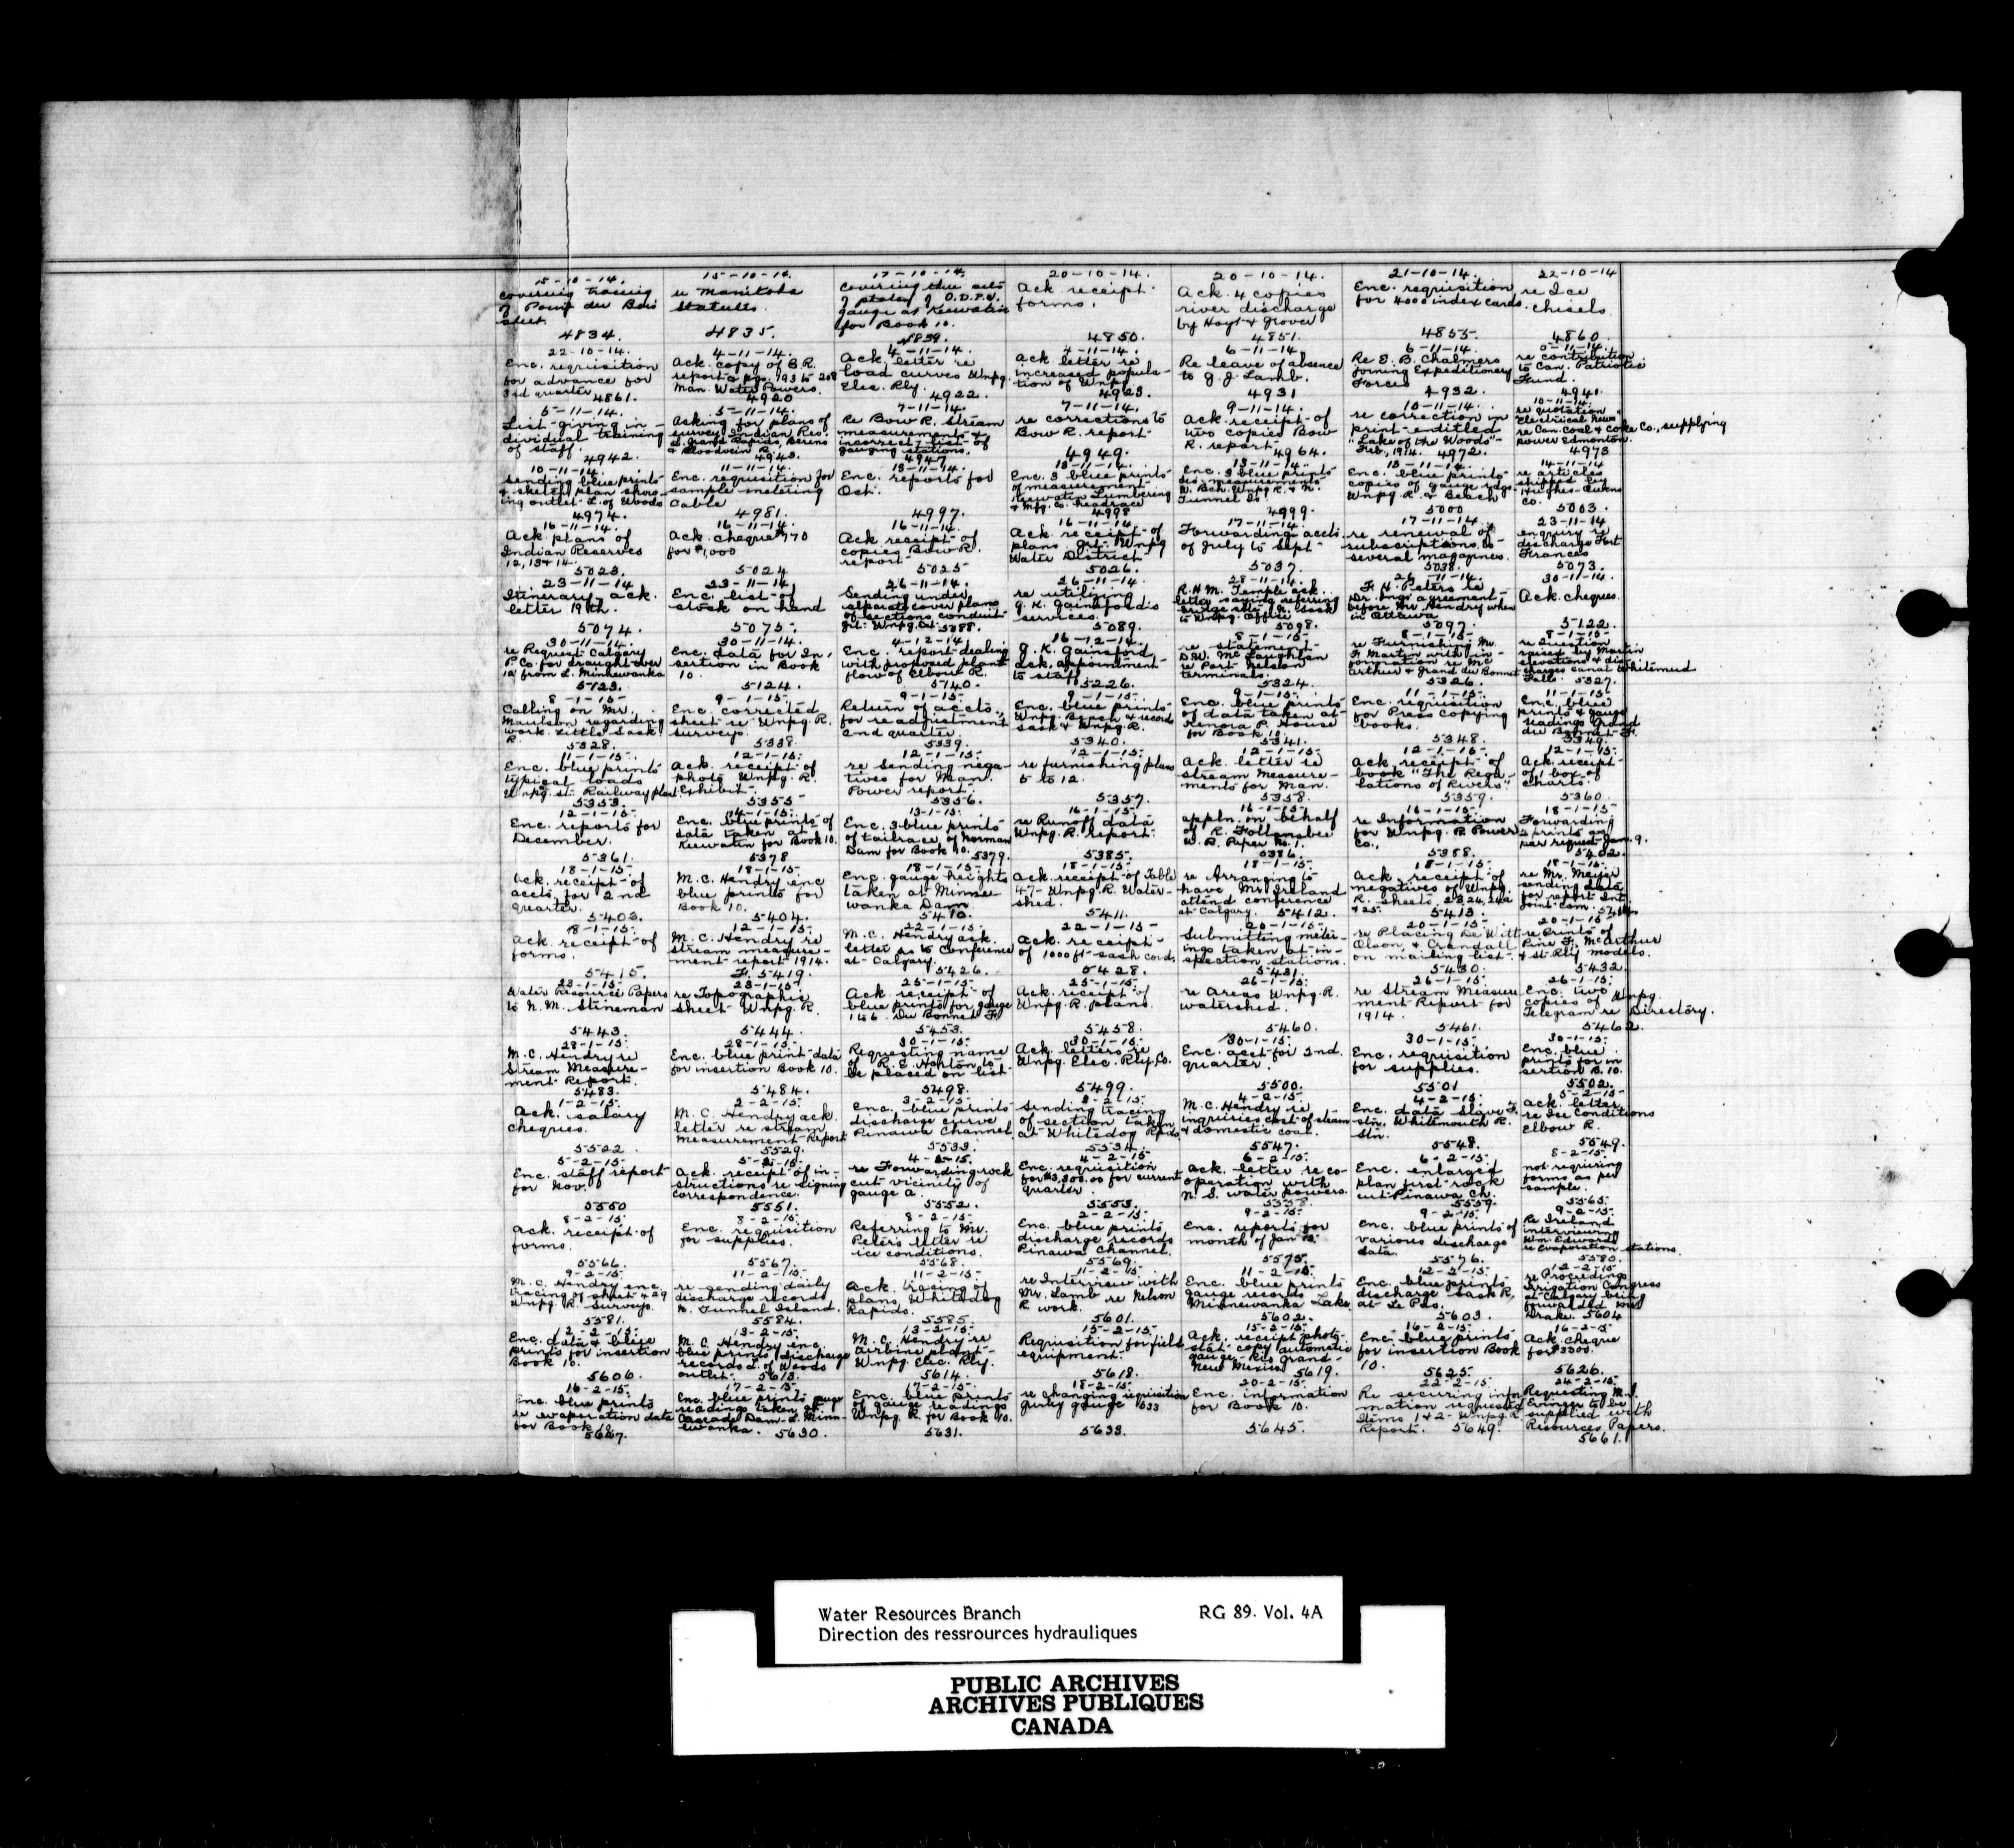 15-10-14.
covering tracing
of Point du Bois
sheet.
4834.
15-10-14.
re Manitoba
Statutes.
4835.
17-10-14.
covering three sets
of O.D.P.W.
gauge at Keewatin
for Book 10.
4839.
20-10-14.
Ack receipt
forms.
4850.
20-10-14.
Ack. 4 copies
river discharge
by Hoyt & Grover
4851.
21-10-14.
Enc. requisition
for 4000 index cards.
4855.
22-10-14
re Ice
chisels.
4860
22-10-14.
Enc. requisition
for advance for
3rd quarter 4861.
4-11-14.
Ack. copy of B.R.
report pgs. 193 to 208
Man. Water Powers.
4920
4-11-14.
Ack. letter re
load curves Wnpg.
Elec. Rly.
4922.
4-11-14.
Ack letter re
increased popula-
tion of Wnpg.
4923.
6-11-14.
Re leave of absence
to G. J. Lamb.
4931
6-11-14.
Re E. B. Chalmers
joining Expeditionary
Forces
4932.
5-11-14.
re contribution
to Can. Patriotic
Fund.
4941.
5-11-14.
List giving in-
dividual training
of staff.
4942.
5-11-14.
Asking for plans of
survey Indian Res.
L. Grand Rapids, Berens
& Bloodvein R.
4943.
7-11-14.
Re Bow R. Stream
measurements &
incorrect list of
gauging stations.
4947
7-11-14.
re corrections to
Bow R. report
4949.
9-11-14.
Ack. receipt of
two copies Bow
R. report
4964.
10-11-14.
re correction in
print entitled
"Lake of the Woods"
Feb., 1914. 4972.
10-11-14.
re quotation
"Electrical News"
re Can. coal & Coke Co., supplying
power Edmonton.
4973
10-11-14.
Sending blue prints
& sketch plan show-
ing outlet L. of Woods
4974.
11-11-14.
Enc. requisition for
sample metering
Cable
4981.
13-11-14.
Enc. reports for
Oct.
4997.
13-11-14.
Enc. 3 blue prints
of measurement
Keewatin Lumbering
& Mfg. Co. headrace
4998
13-11-14.
Enc. 3 blue prints
dis. measurements
W. Bch. Wnpg R. & N.
Tunnel Is.
4999.
13-11-14.
Enc. blue prints
copies of gauge rdgs.
Wnpg. R. & Beach
5000
14-11-14
re articles
shipped by
Hughes-Owens
Co.
5003.
16-11-14.
Ack. plans of
Indian Reserves
12, 13 & 14.
5023.
16-11-14.
Ack. cheque 770
for $1,000
5024
16-11-14.
Ack receipt of
copies Bow R.
report
5025
16-11-14.
Ack receipt of
plans Grt. Wnpg
Water District
5026.
17-11-14.
Forwarding accts.
of July to Sept
5037
17-11-14.
re renewal of
subscriptions to
several magazines.
5038.
23-11-14
enquiry re
discharge Fort
Frances
5073.
23-11-14
Itinerary ack.
letter 19th.
5074.
23-11-14
Enc. list of
stock on hand
5075.
26-11-14.
Sending under
separate cover plans
of sections conduit
Grt. Wnpg. Dist. 5088.
26-11-14.
re utilizing
G. K. Gainsford's
services.
5089.
28-11-14.
R.H.M. Temple ack.
letter saying referring
bridge site
to Wnpg. Office
5098.
26-11-14.
F. H. Peters re
Dr. Ings agreement
before Mr. Hendry when
in Ottawa
5097.
30-11-14.
Ack. cheques.
5122.
30-11-14.
re Request Calgary
P. Co. for draught over
12 from L. Minnewanka
5123.
30-11-14.
Enc. data for In-
sertion in Book
10.
5124.
4-12-14.
Enc. report dealing
with proposed plant
flow of Elbow R.
5140.
16-12-14.
G. K. Gainsford
ack. appointment
to staff
5226.
8-1-15.
re statement
D.W. McLaughlin
re Port Nelson
terminals.
5324.
8-1-15.
re Furnishing Mr.
F. Martin with in-
formation re Mc
Arthur & Grand du Bonnet
5326.
8-1-15.
re Question
raised by Martin
elevations & dis-
charges canal Whitemud
Falls. 5327.
8-1-15.
Calling on Mr.
Maulson regarding
work Little Sask
R.
5328.
9-1-15.
Enc. corrected
sheet re Wnpg. R.
surveys.
5338.
9-1-15.
Return of accts.
for readjustment
2nd quarter.
5339.
9-1-15.
Enc. blue prints
Wnpg. Beach & records
Sask & Wnpg. R.
5340.
9-1-15.
Enc. blue prints
of data taken at
Kenora P. House
for Book 10.
5341.
11-1-15.
Enc. requisition
for Press copying
books.
5348.
11-1-15
Enc. blue
prints & gauge
readings Grand
du Bonnet F.
5349.
11-1-15.
Enc. blue prints
typical loads
Wnpg. St. Railway plant
5353.
12-1-15.
Ack. receipt of
photo Wnpg. R.
Exhibit.
5355
12-1-15.
re sending nega-
tives for Man.
Power report.
5356.
12-1-15.
re furnishing plans
5 to 12.
5357.
12-1-15.
Ack. letter re
stream measure-
ments for Man.
5358.
12-1-15.
Ack. receipt of
book "The Regu-
lations of Rivers".
5359.
12-1-15.
Ack. receipt
of 1 box of
Charts.
5360.
12-1-15.
Enc. reports for
December.
5361.
14-1-15.
Enc. blue prints of
data taken at
Keewatin for Book 10.
5378
13-1-15.
Enc. 3 blue prints
of tailrace of Norman
Dam for Book 10.
5379.
16-1-15.
re Runoff data
Wnpg. R. report.
5385.
16-1-15.
appln. on behalf
of R. Follansbee
W. R. Paper No. 1.
5386.
16-1-15.
re Information
for Wnpg. R. Power
Co.,
5388.
18-1-15
Forwarding
prints as
per request Jan. 9.
5402.
18-1-15.
Ack. receipt of
accts. for 2nd
quarter.
5403.
18-1-15.
M. C. Hendry enc
blue prints for
Book 10.
5404.
18-1-15.
Enc. gauge heights
taken at Minne-
wanka Dam.
5410.
18-1-15.
Ack. receipt of Table
47 - Wnpg. R. Water-
shed.
5411.
18-1-15.
re Arranging to
have Mr. Ireland
attend conference
at Calgary. 5412.
18-1-15.
Ack receipt of
negatives of Wnpg.
R. sheets. 23, 24, 24a
& 25. 5413.
18-1-15.
re Mr. Meyer
sending data
for report Int.
Joint Com.
18-1-15.
Ack. receipt of
forms.
5415.
12-1-15.
M. C. Hendry re
stream measure-
ment report 1914.
F. 5419.
22-1-15.
M. C. Hendry ack.
letter as to Conference
at Calgary.
5426.
22-1-15
Ack receipt
of 1000 ft sash cords
5428.
20-1-15.
Submitting meter-
ings taken at in-
spection stations.
5431.
20-1-15.
re Placing De Witt
Olson & Crandall
on mailing list.
5430.
20-1-15
re Prints of
Pine F. McArthur
& St. Rly models.
5432.
23-1-15.
Water Resource Papers
to N. M. Stineman
5443.
23-1-15
re Topographic
sheet Wnpg. R.
5444.
25-1-15.
Ack receipt of
blue prints for gauge
1 to 6. Du Bonnet F.
5453.
25-1-15.
Ack. receipt of
Wnpg. R. plans.
5458.
26-1-15.
re Areas Wnpg. R.
watershed.
5460.
26-1-15.
re Stream Measure-
ment Report for
1914.
5461.
26-1-15.
Enc. two
copies of Wnpg.
Telegram re Directory.
5462.
28-1-15.
M. C. Hendry re
Stream Measure-
ment Report.
5483.
28-1-15.
Enc. blue print data
for insertion Book 10.
5484.
30-1-15.
Requesting name
of R. E. Horton to
be placed on list
5498.
30-1-15.
Ack. letters re
Wnpg. Elec. Rly. Co.
5499.
30-1-15.
Enc. acct for 2nd.
quarter.
5500.
30-1-15.
Enc. requisition
for supplies.
5501
30-1-15.
Enc. blue
prints for in
sertion B. 10.
5502.
1-2-15.
Ack. salary
cheques.
5522
2-2-15.
M. C. Hendry ack.
letter re stream
measurement Report
5529.
3-2-15.
Enc. blue prints
discharge curve
Pinawa Channel
5533.
3-2-15.
Sending tracing
of section taken
at Whitedog Rpds.
5534.
4-2-15.
M. C. Hendry re
inquiries cost of steam
& domestic coal.
5547.
4-2-15.
Enc. data Slave F.
stn. Whitemouth R.
Stn.
5548.
5-2-15.
Ack letter
re Ice Conditions
Elbow R.
5549.
5-2-15.
Enc. staff report
for Nov.
5550
5-2-15.
Ack. receipt of in-
structions re signing
correspondence.
5551.
4-2-15.
re Forwarding rock
cut vicinity of
gauge a.
5552.
4-2-15.
Enc. requisition
for $3,300.00 for current
quarter.
5553.
6-2-15.
ack. letter re co-
operation with
N. S. water powers.
5558.
6-2-15.
Enc. enlarged
plan first rock
cut Pinawa Ch.
5559.
8-2-15.
not requiring
forms as per
sample.
5565.
8-2-15.
Ack. receipt of
forms.
5566.
8-2-15.
Enc. requisition
for supplies.
5567.
8-2-15.
Referring to Mr.
Peters letter re
ice conditions.
5568.
2-2-15.
Enc. blue prints
discharge records
Pinawa Channel.
5569.
9-2-15.
Enc. reports for
month of Jan 15.
5575.
9-2-15.
Enc. blue prints of
various discharge
data.
5576.
9-2-15.
Re Ireland
interviewing
Wm. Edwards
re Evaporation stations.
5580.
9-2-15.
M. C. Hendry enc.
tracing of sheet 429
Wnpg. R. Surveys.
5581.
11-2-15.
re sending daily
discharge records
N. Tunnel Island.
5584.
11-2-15.
Ack. tracing of
plans Whitedog
Rapids.
5585.
11-2-15.
re Interview with
Mr. Lamb re Nelson
R work.
5601.
11-2-15.
Enc. blue prints
gauge records
Minnewanka Lake.
5602.
12-2-15.
Enc. blue prints
discharge Sask R.
at Le Pas.
5603.
12-2-15
re Proceedings
Irrigation Congress
at Calgary being
forwarded Mr.
Drake. 5604
12-2-15.
Enc. data & blue
prints for insertion
Book 10.
5606.
13-2-15.
M. C. Hendry enc.
blue prints discharge
records L. of Woods
outlet. 5613.
13-2-15.
M. C. Hendry re
turbine plant
Wnpg. Elec. Rly.
5614.
15-2-15.
Requisition for field
equipment.
5618.
15-2-15.
Ack. receipt photo-
stat copy automatic
gauge - Rio Grand -
New Mexico 5619.
16-2-15.
Enc. blue prints
for insertion Book
10.
5625.
16-2-15
Ack. cheque
for $3300.
5626.
16-2-15.
Enc. blue prints
re evaporation data
for Book 10.
5627.
17-2-15.
Enc. blue prints gauge
readings taken at
Cascade Dam - L. Minn-
ewanka. 5630.
17-2-15.
Enc. blue prints
of gauge readings
Wnpg. R. for Book 10.
5631.
18-2-15.
re changing requisition
gurley gauge 633
5633.
20-2-15.
Enc. information
for Book 10.
5645.
22-2-15.
Re securing infor
mation requested
Items 1 & 2 - Wnpg. R.
Report. 5649.
24-2-15.
Requesting M. J.
to be
supplied with
Resources Papers.
5661.
Water Resources Branch RG 89. Vol. 4A
Direction des ressrources hydrauliques
PUBLIC ARCHIVES
ARCHIVES PUBLIQUES
CANADA